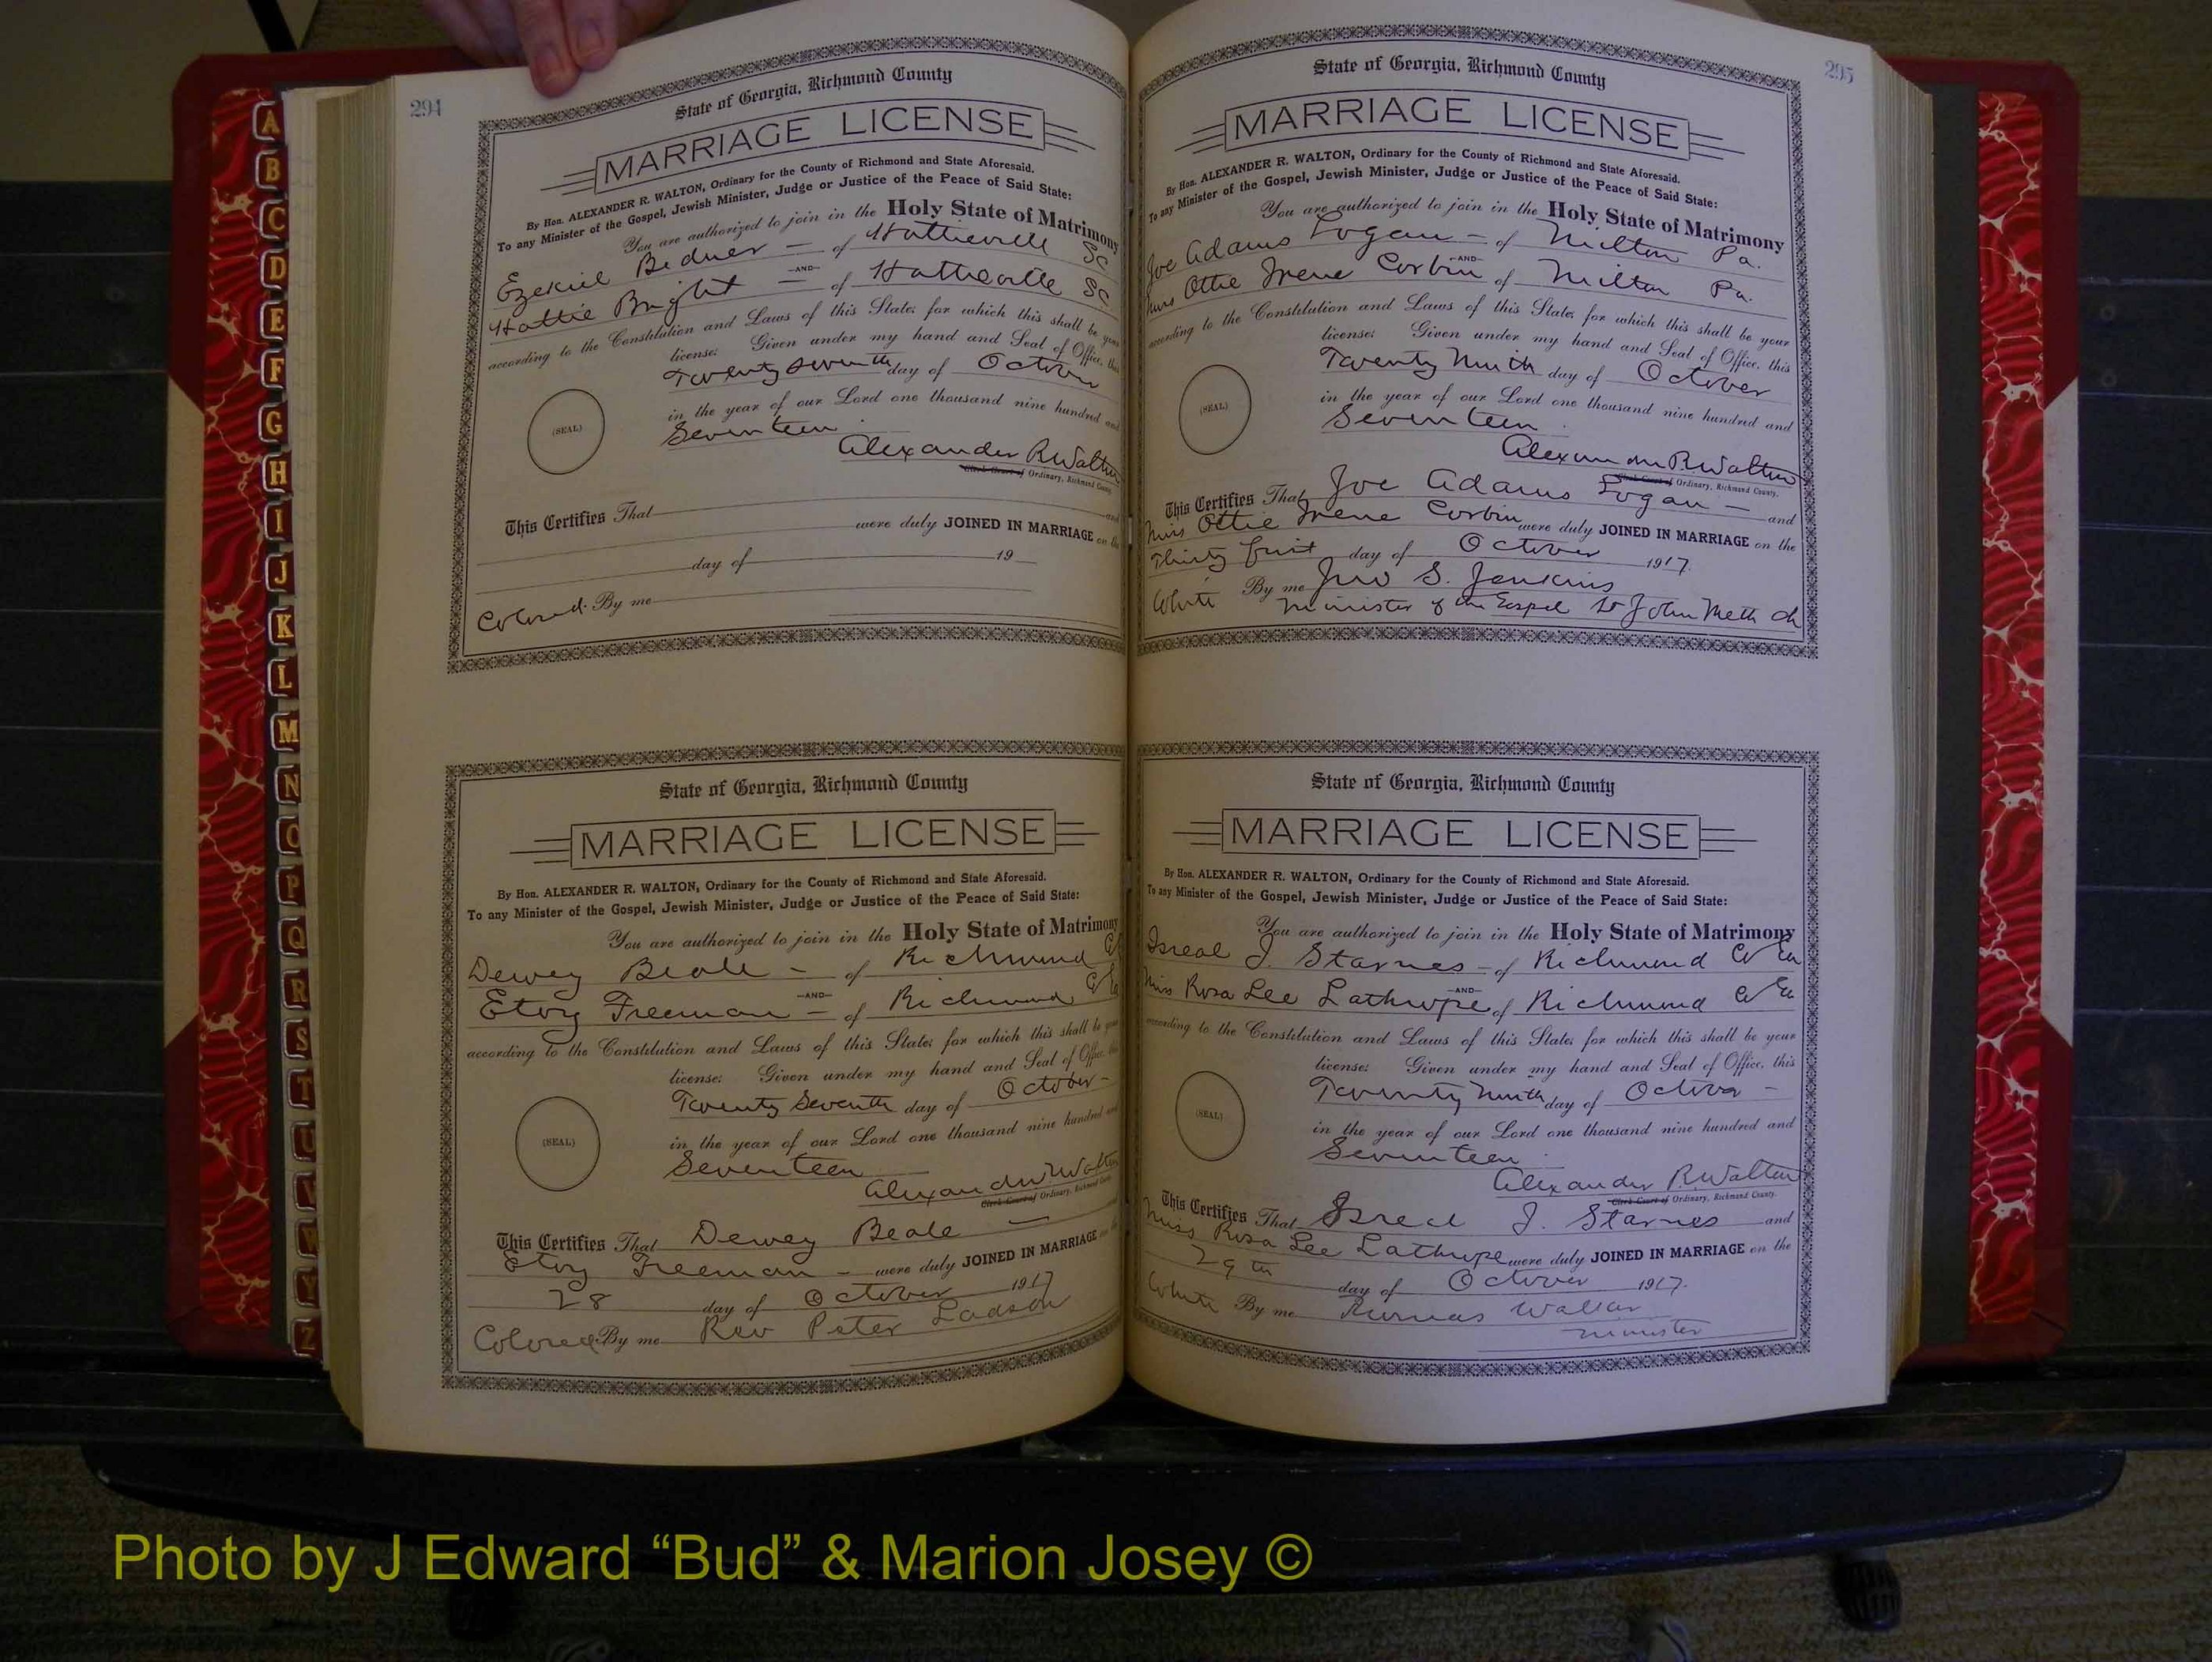 294
State of Georgia, Richmond County
MARRIAGE LICENSE
By Hon. ALEXANDER R. WALTON, Ordinary for the County of Richmond and State Aforesaid.
To any Minister of the Gospel, Jewish Minister, Judge or Justice of the Peace of Said State:
You are authorized to join in the Holy State of Matrimony
Ezekiel - of SC
—AND—
Hattie Bright - of SC
according to the Constitution and Laws of this State; for which this shall be your
license: Given under my hand and Seal of Office, this
Twenty seventh day of October
in the year of our Lord one thousand nine hundred and
(SEAL)
Seventeen
Alexander R Walton
Clerk Court of Ordinary, Richmond County
This Certifies That and
were duly JOINED IN MARRIAGE on the
day of 19
Colored. By me
State of Georgia, Richmond County
MARRIAGE LICENSE
By Hon. ALEXANDER R. WALTON, Ordinary for the County of Richmond and State Aforesaid.
To any Minister of the Gospel, Jewish Minister, Judge or Justice of the Peace of Said State:
You are authorized to join in the Holy State of Matrimony
Dewey Beale - of Richmond
—AND—
Freeman - of Richmond
according to the Constitution and Laws of this State; for which this shall be your
license: Given under my hand and Seal of Office, this
Twenty Seventh day of October -
in the year of our Lord one thousand nine hundred and
(SEAL)
Seventeen
Alexander R Walton
Clerk Court of Ordinary, Richmond County
This Certifies That Dewey Beale —
Freeman - were duly JOINED IN MARRIAGE on the
28 day of October 1917
Colored By me Rev Peter Ladson
295
State of Georgia, Richmond County
MARRIAGE LICENSE
By Hon. ALEXANDER R. WALTON, Ordinary for the County of Richmond and State Aforesaid.
To any Minister of the Gospel, Jewish Minister, Judge or Justice of the Peace of Said State:
You are authorized to join in the Holy State of Matrimony
Joe Adams Logan - of Milton Pa.
—AND—
Miss Ottie Irene Corbin of Milton Pa.
according to the Constitution and Laws of this State; for which this shall be your
license: Given under my hand and Seal of Office, this
Twenty Ninth day of October
in the year of our Lord one thousand nine hundred and
(SEAL)
Seventeen
Alexander R Walton
Clerk Court of Ordinary, Richmond County.
This Certifies That Joe Adams Logan — and
Miss Ottie Irene Corbin were duly JOINED IN MARRIAGE on the
Thirty first day of October 1917.
White By me Jno S. Jenkins
Minister of the Gospel St John Meth Ch
State of Georgia, Richmond County
MARRIAGE LICENSE
By Hon. ALEXANDER R. WALTON, Ordinary for the County of Richmond and State Aforesaid.
To any Minister of the Gospel, Jewish Minister, Judge or Justice of the Peace of Said State:
You are authorized to join in the Holy State of Matrimony
Isreal J. Starnes - of Richmond Co Ga
—AND—
Miss Rosa Lee Lathrope of Richmond Co Ga
according to the Constitution and Laws of this State; for which this shall be your
license: Given under my hand and Seal of Office, this
Twenty Ninth day of October -
in the year of our Lord one thousand nine hundred and
(SEAL)
Seventeen
Alexander R Walton
Clerk Court of Ordinary, Richmond County.
This Certifies That Isreal J. Starnes and
Miss Rosa Lee Lathrope were duly JOINED IN MARRIAGE on the
29th day of October 1917.
White By me Thomas Walker
Minister
A
B
C
D
E
F
G
H
I
J
K
L
M
N
O
P
Q
R
S
T
U
V
W
Y
Z
Photo by J Edward “Bud” & Marion Josey ©